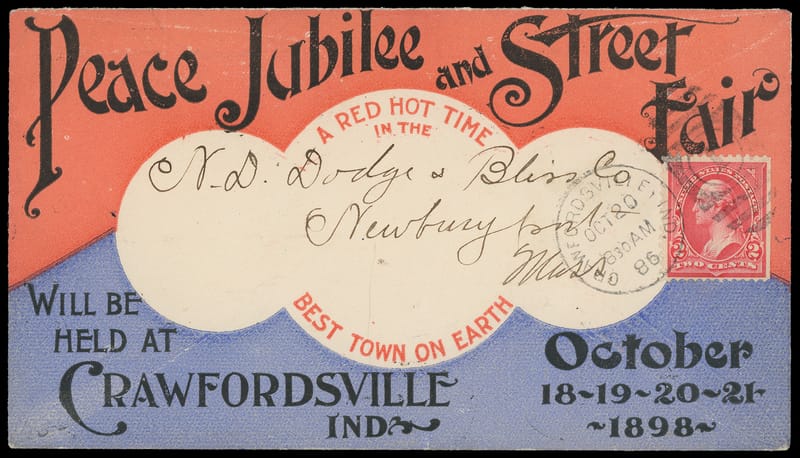 Peace Jubilee and Street Fair
A RED HOT TIME
IN THE
N. D. Dodge & Bliss Co
Newburyport
Mass
BEST TOWN ON EARTH
WILL BE
HELD AT
CRAWFORDSVILLE
IND
October
18~19~20~21
~1898~
CRAWFORDSVILLE, IND.
OCT 20
830AM
98
UNITED STATES POSTAGE
2 2
TWO CENTS